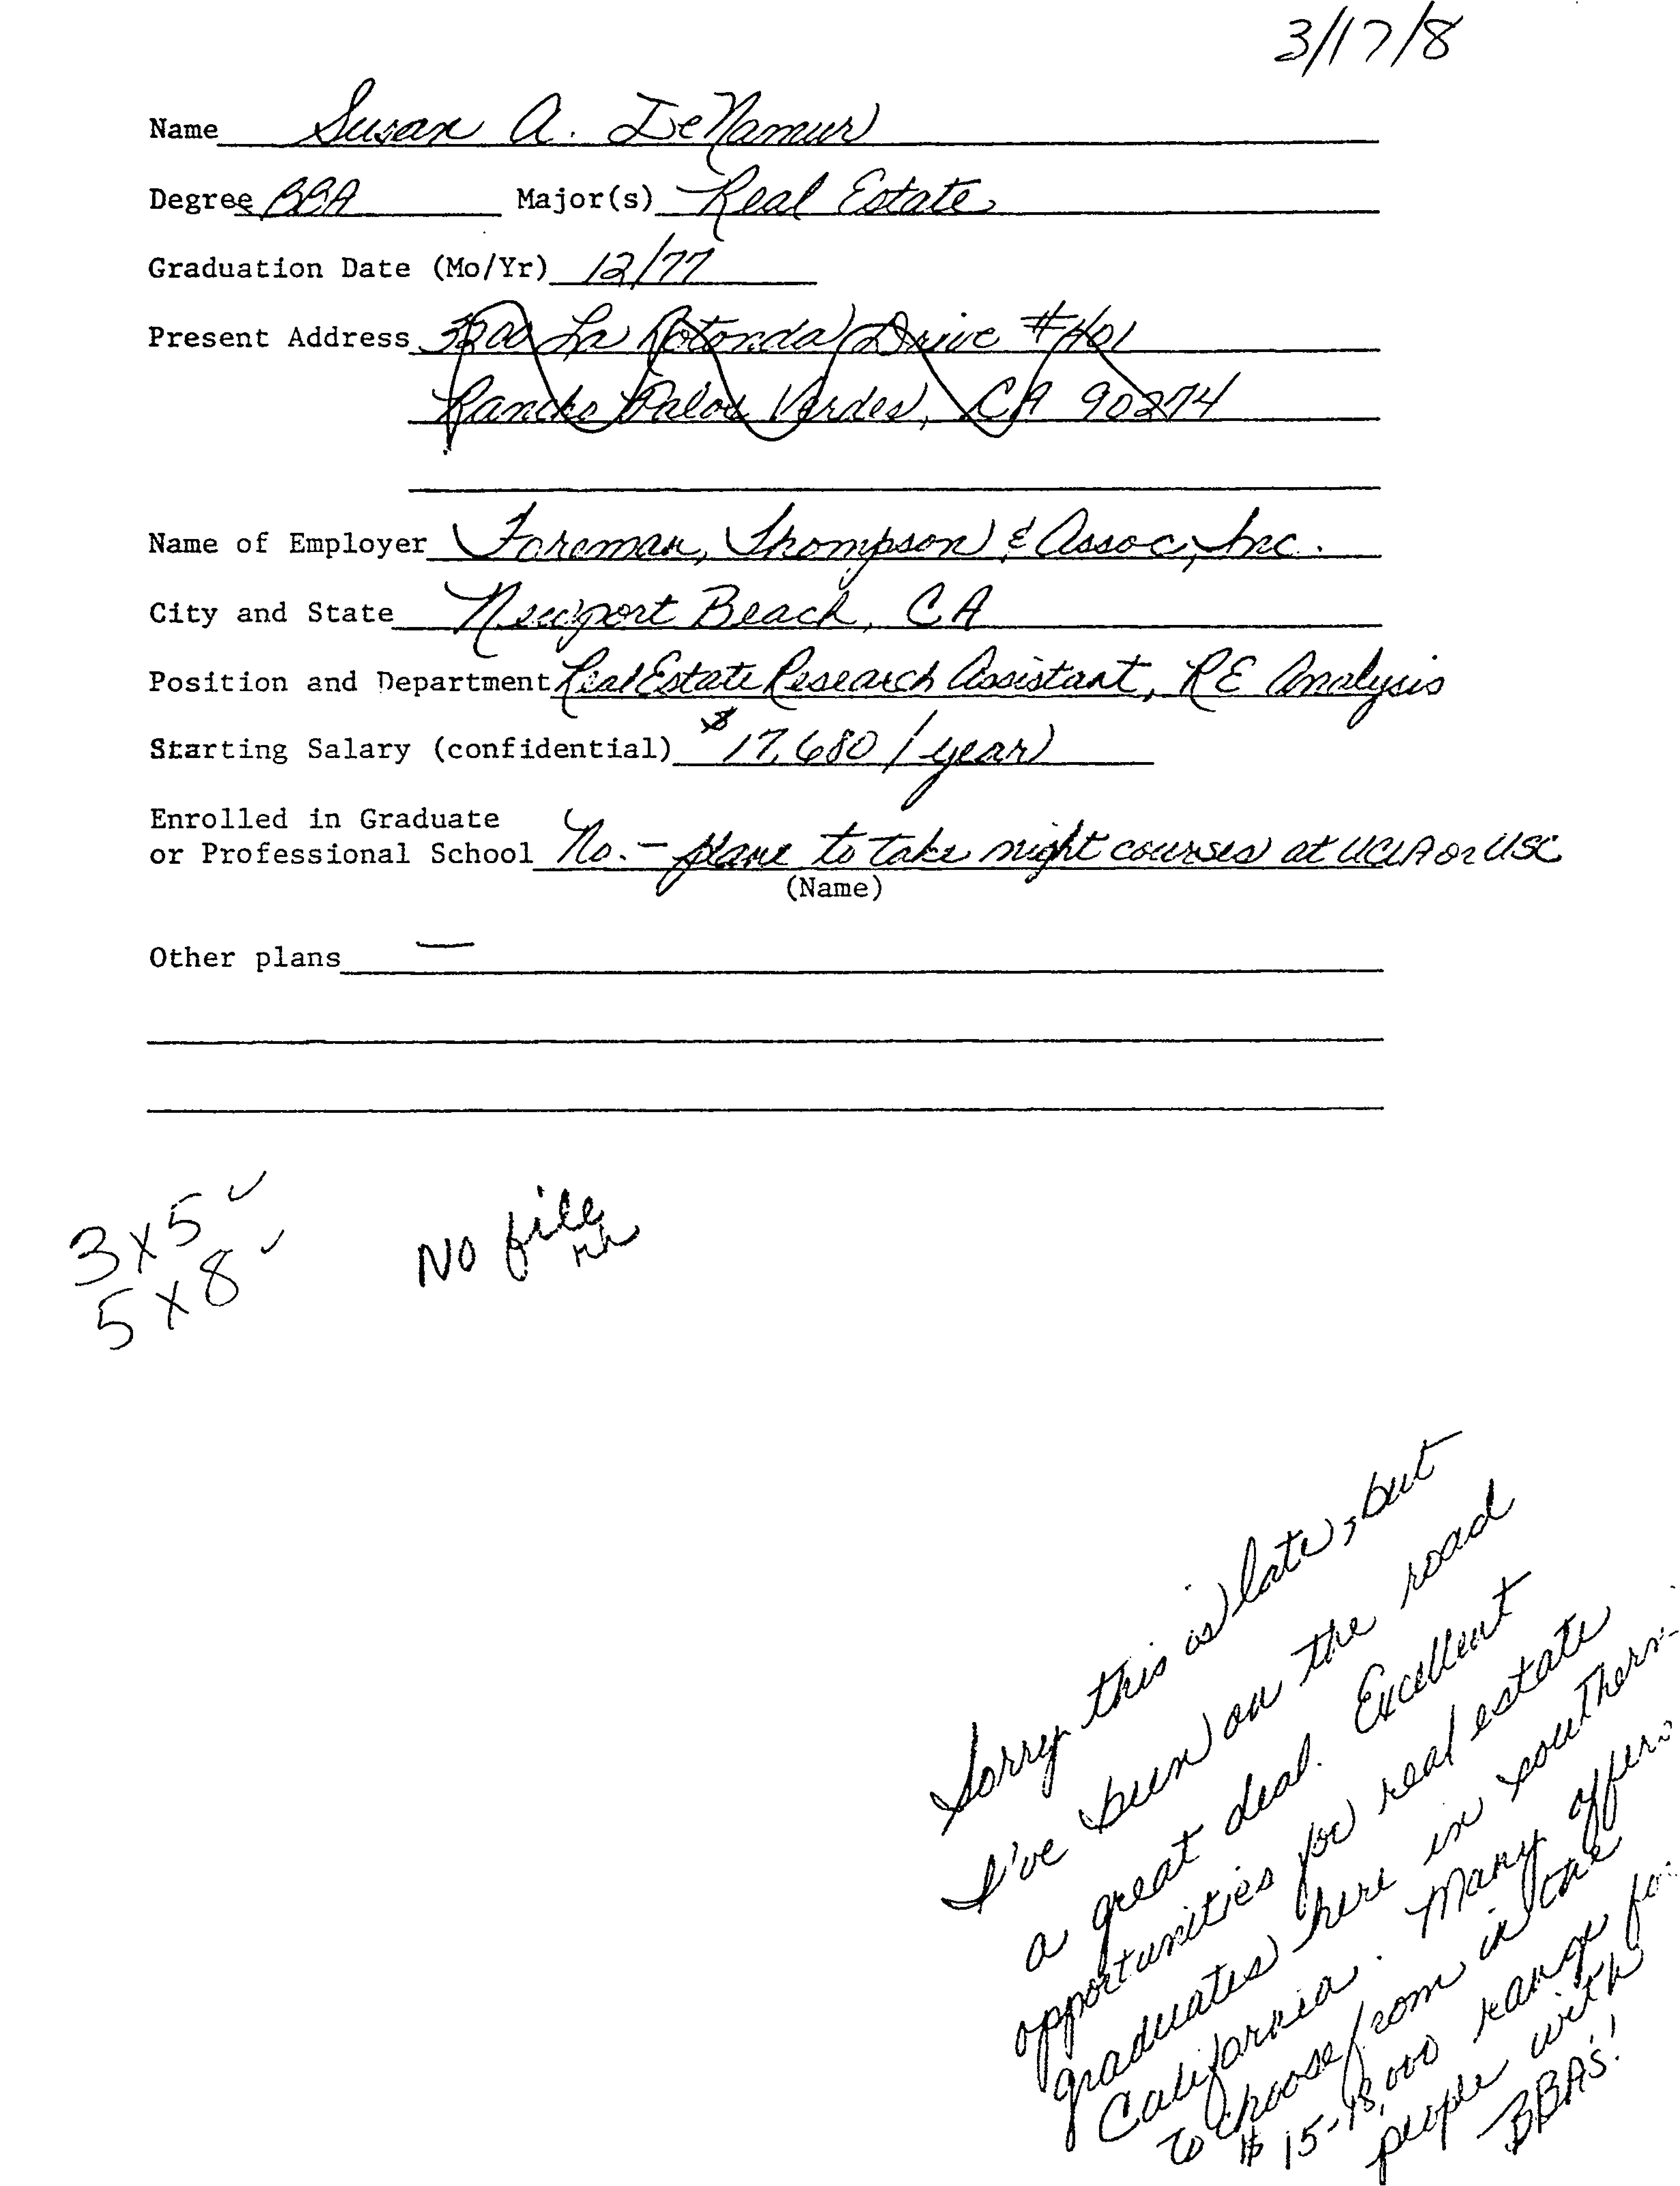 3/17/8
Name Susan A. DeNamur
Degree BBA Major(s) Real Estate
Graduation Date (Mo/Yr) 12/77
Present Address 3200 La Rotonda Drive #401
Rancho Palos Verdes, CA 90274
Name of Employer Foreman, Thompson & Assoc, Inc.
City and State Newport Beach, CA
Position and Department Real Estate Research Assistant, RE Analysis
Starting Salary (confidential) $17,680/year
Enrolled in Graduate
or Professional School No. - plans to take night courses at UCLA or USC
(Name)
Other plans —
3x5 ✓
5x8 ✓
No file
Sorry this is late, but
I've been on the road
a great deal. Excellent
opportunities for real estate
graduates here in southern
California. Many offers
to choose from in the
$15-18,000 range for
people with
BBA's!